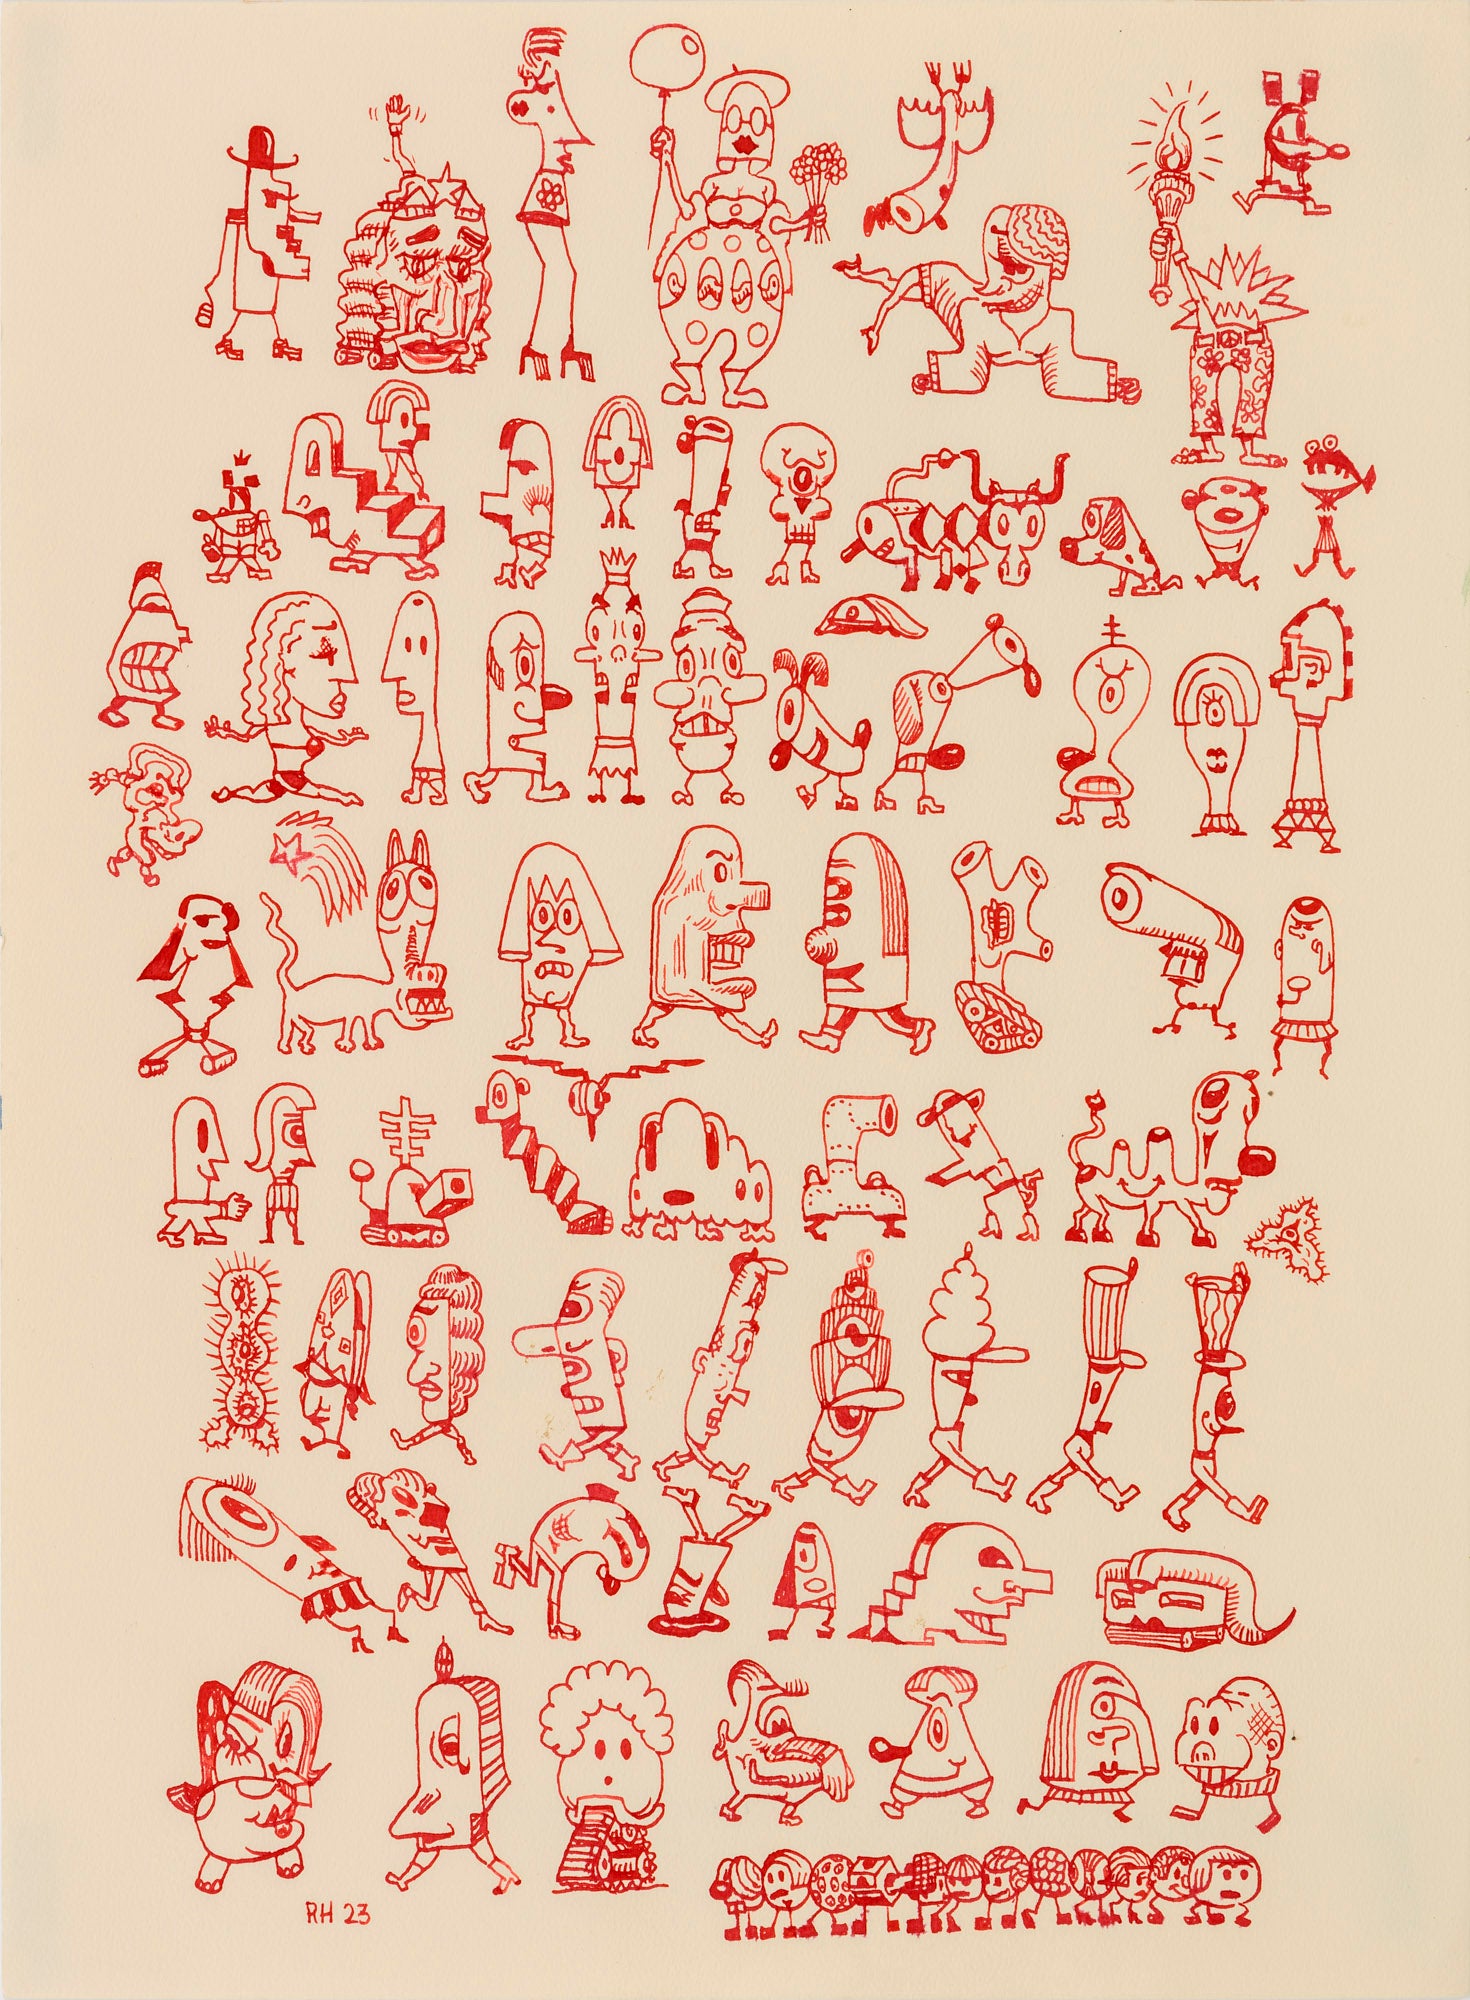 RH 23